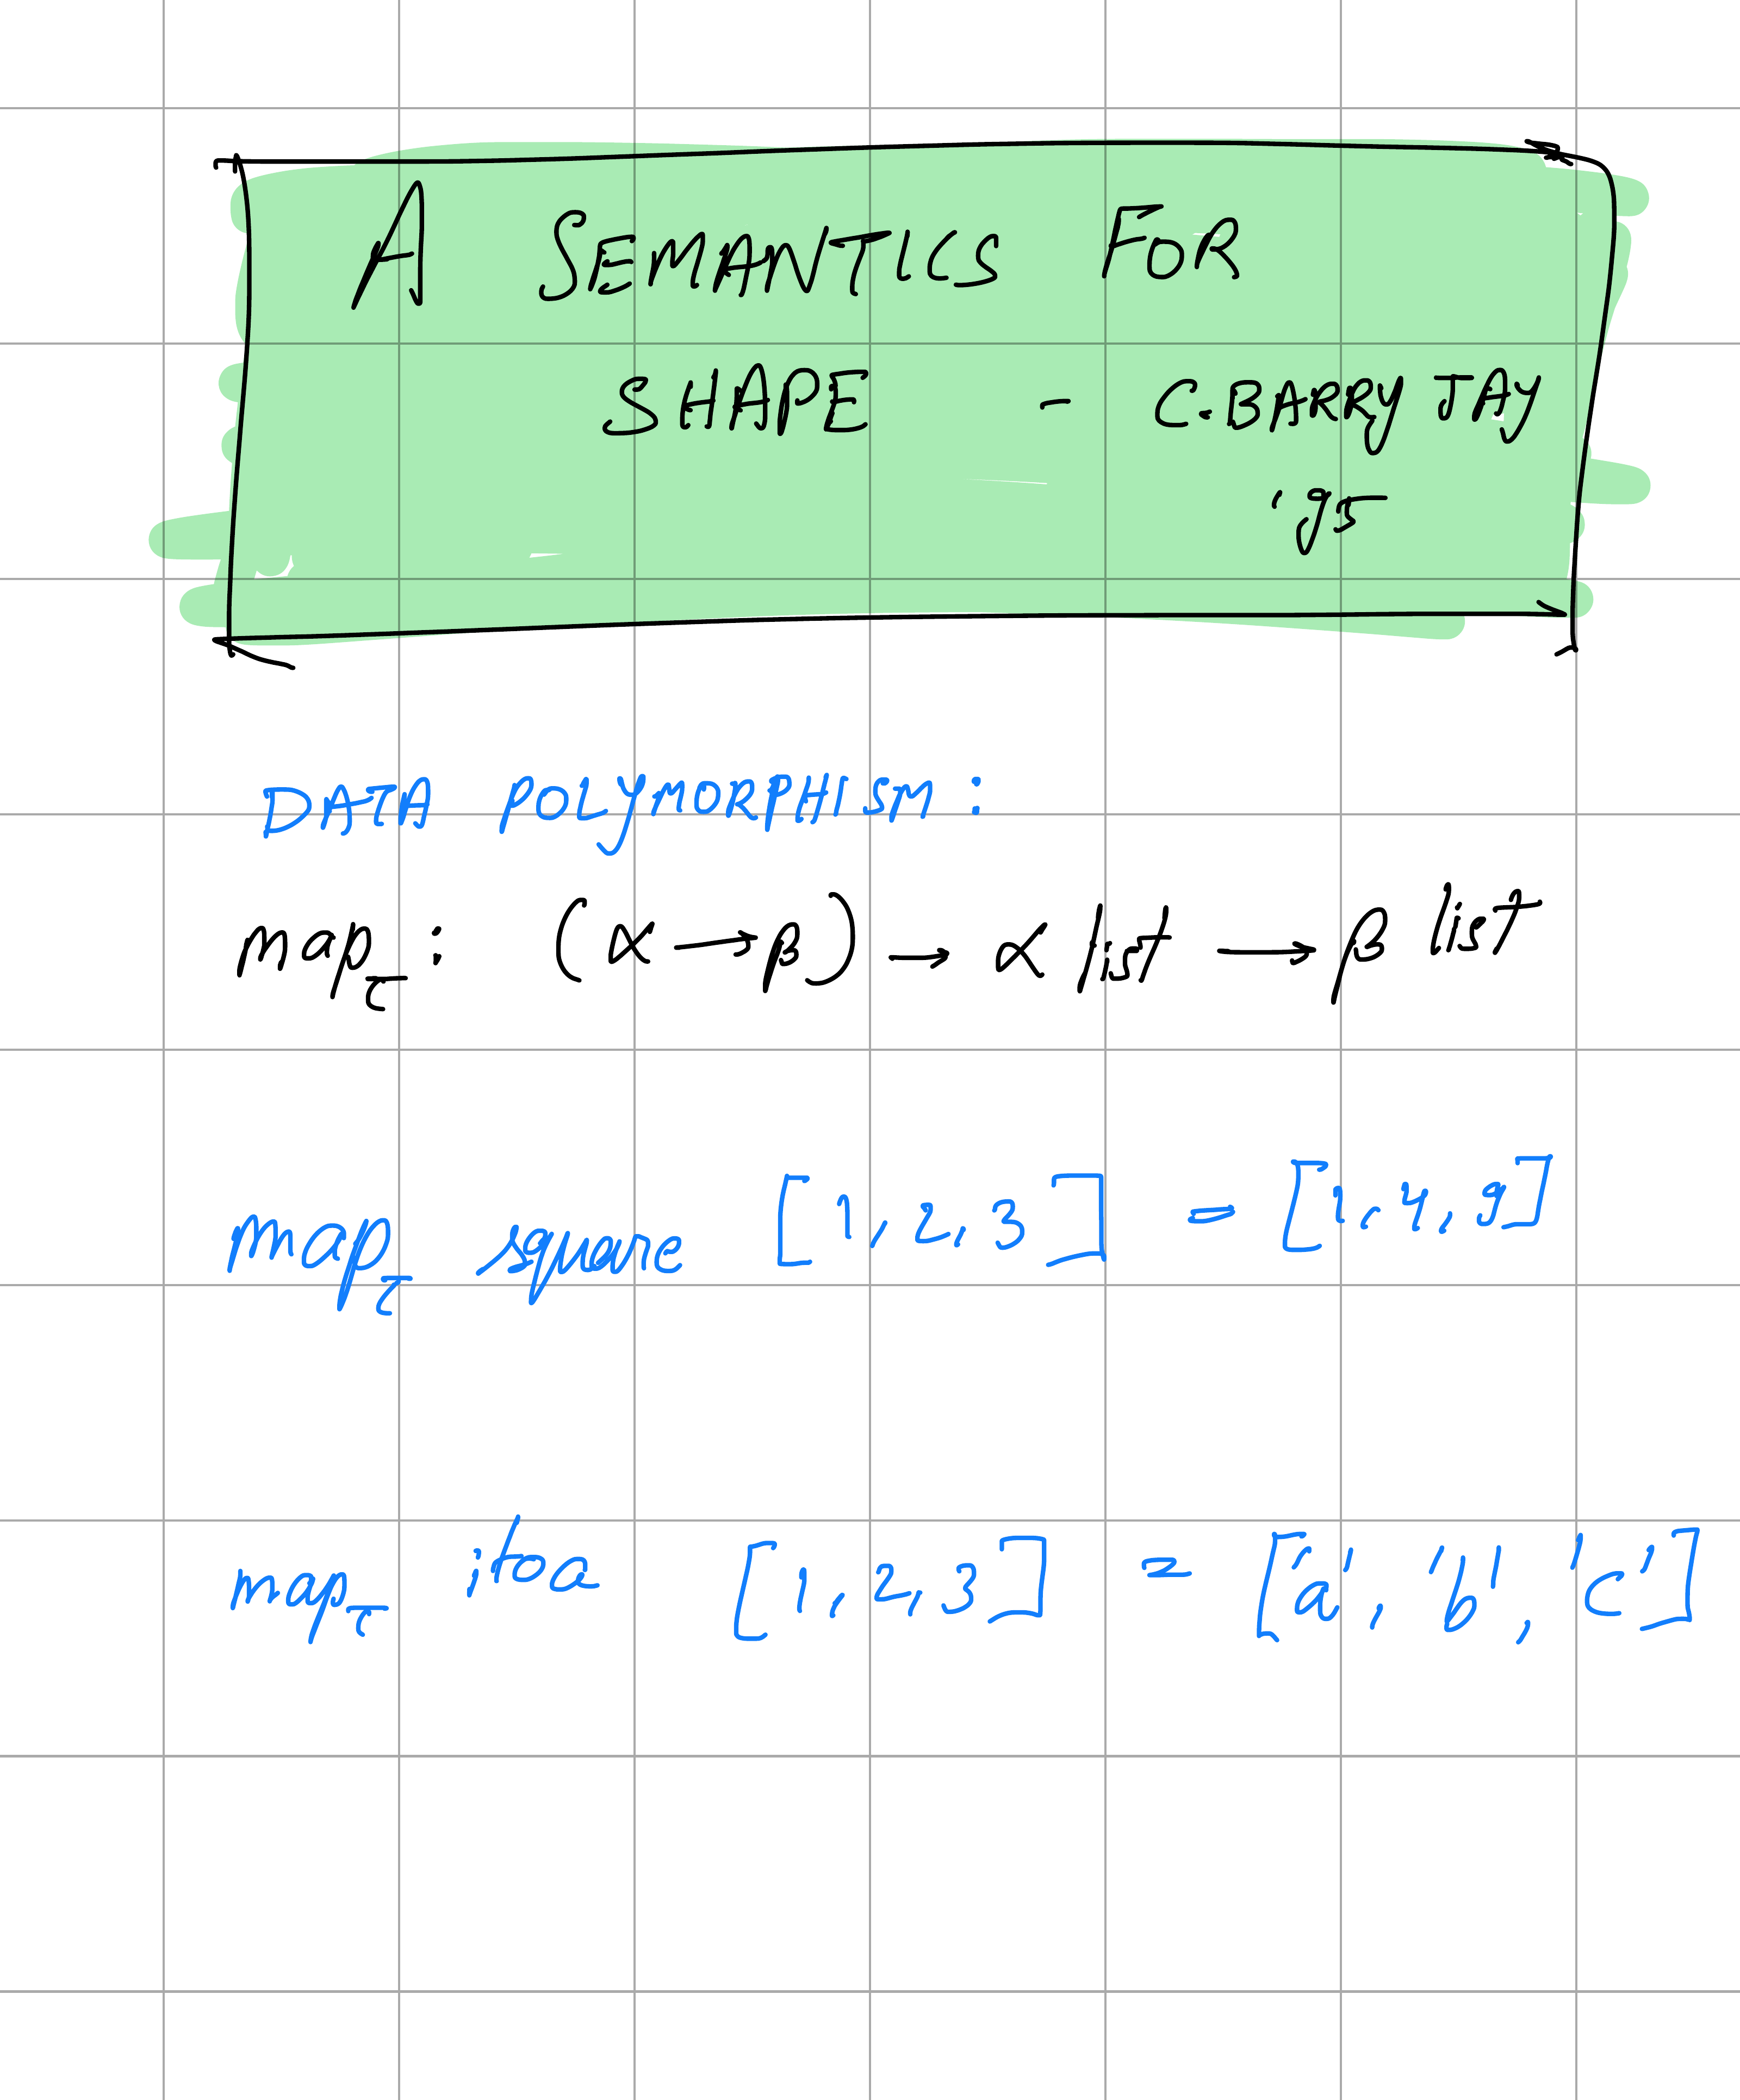 A SEMANTICS FOR
SHAPE - C.BARRY JAY
'95
DATA POLYMORPHISM:
map_τ : (α → β) → α list → β list
map_τ square [1, 2, 3] = [1, 4, 9]
map_τ itoa [1, 2, 3] = ['a', 'b', 'c']